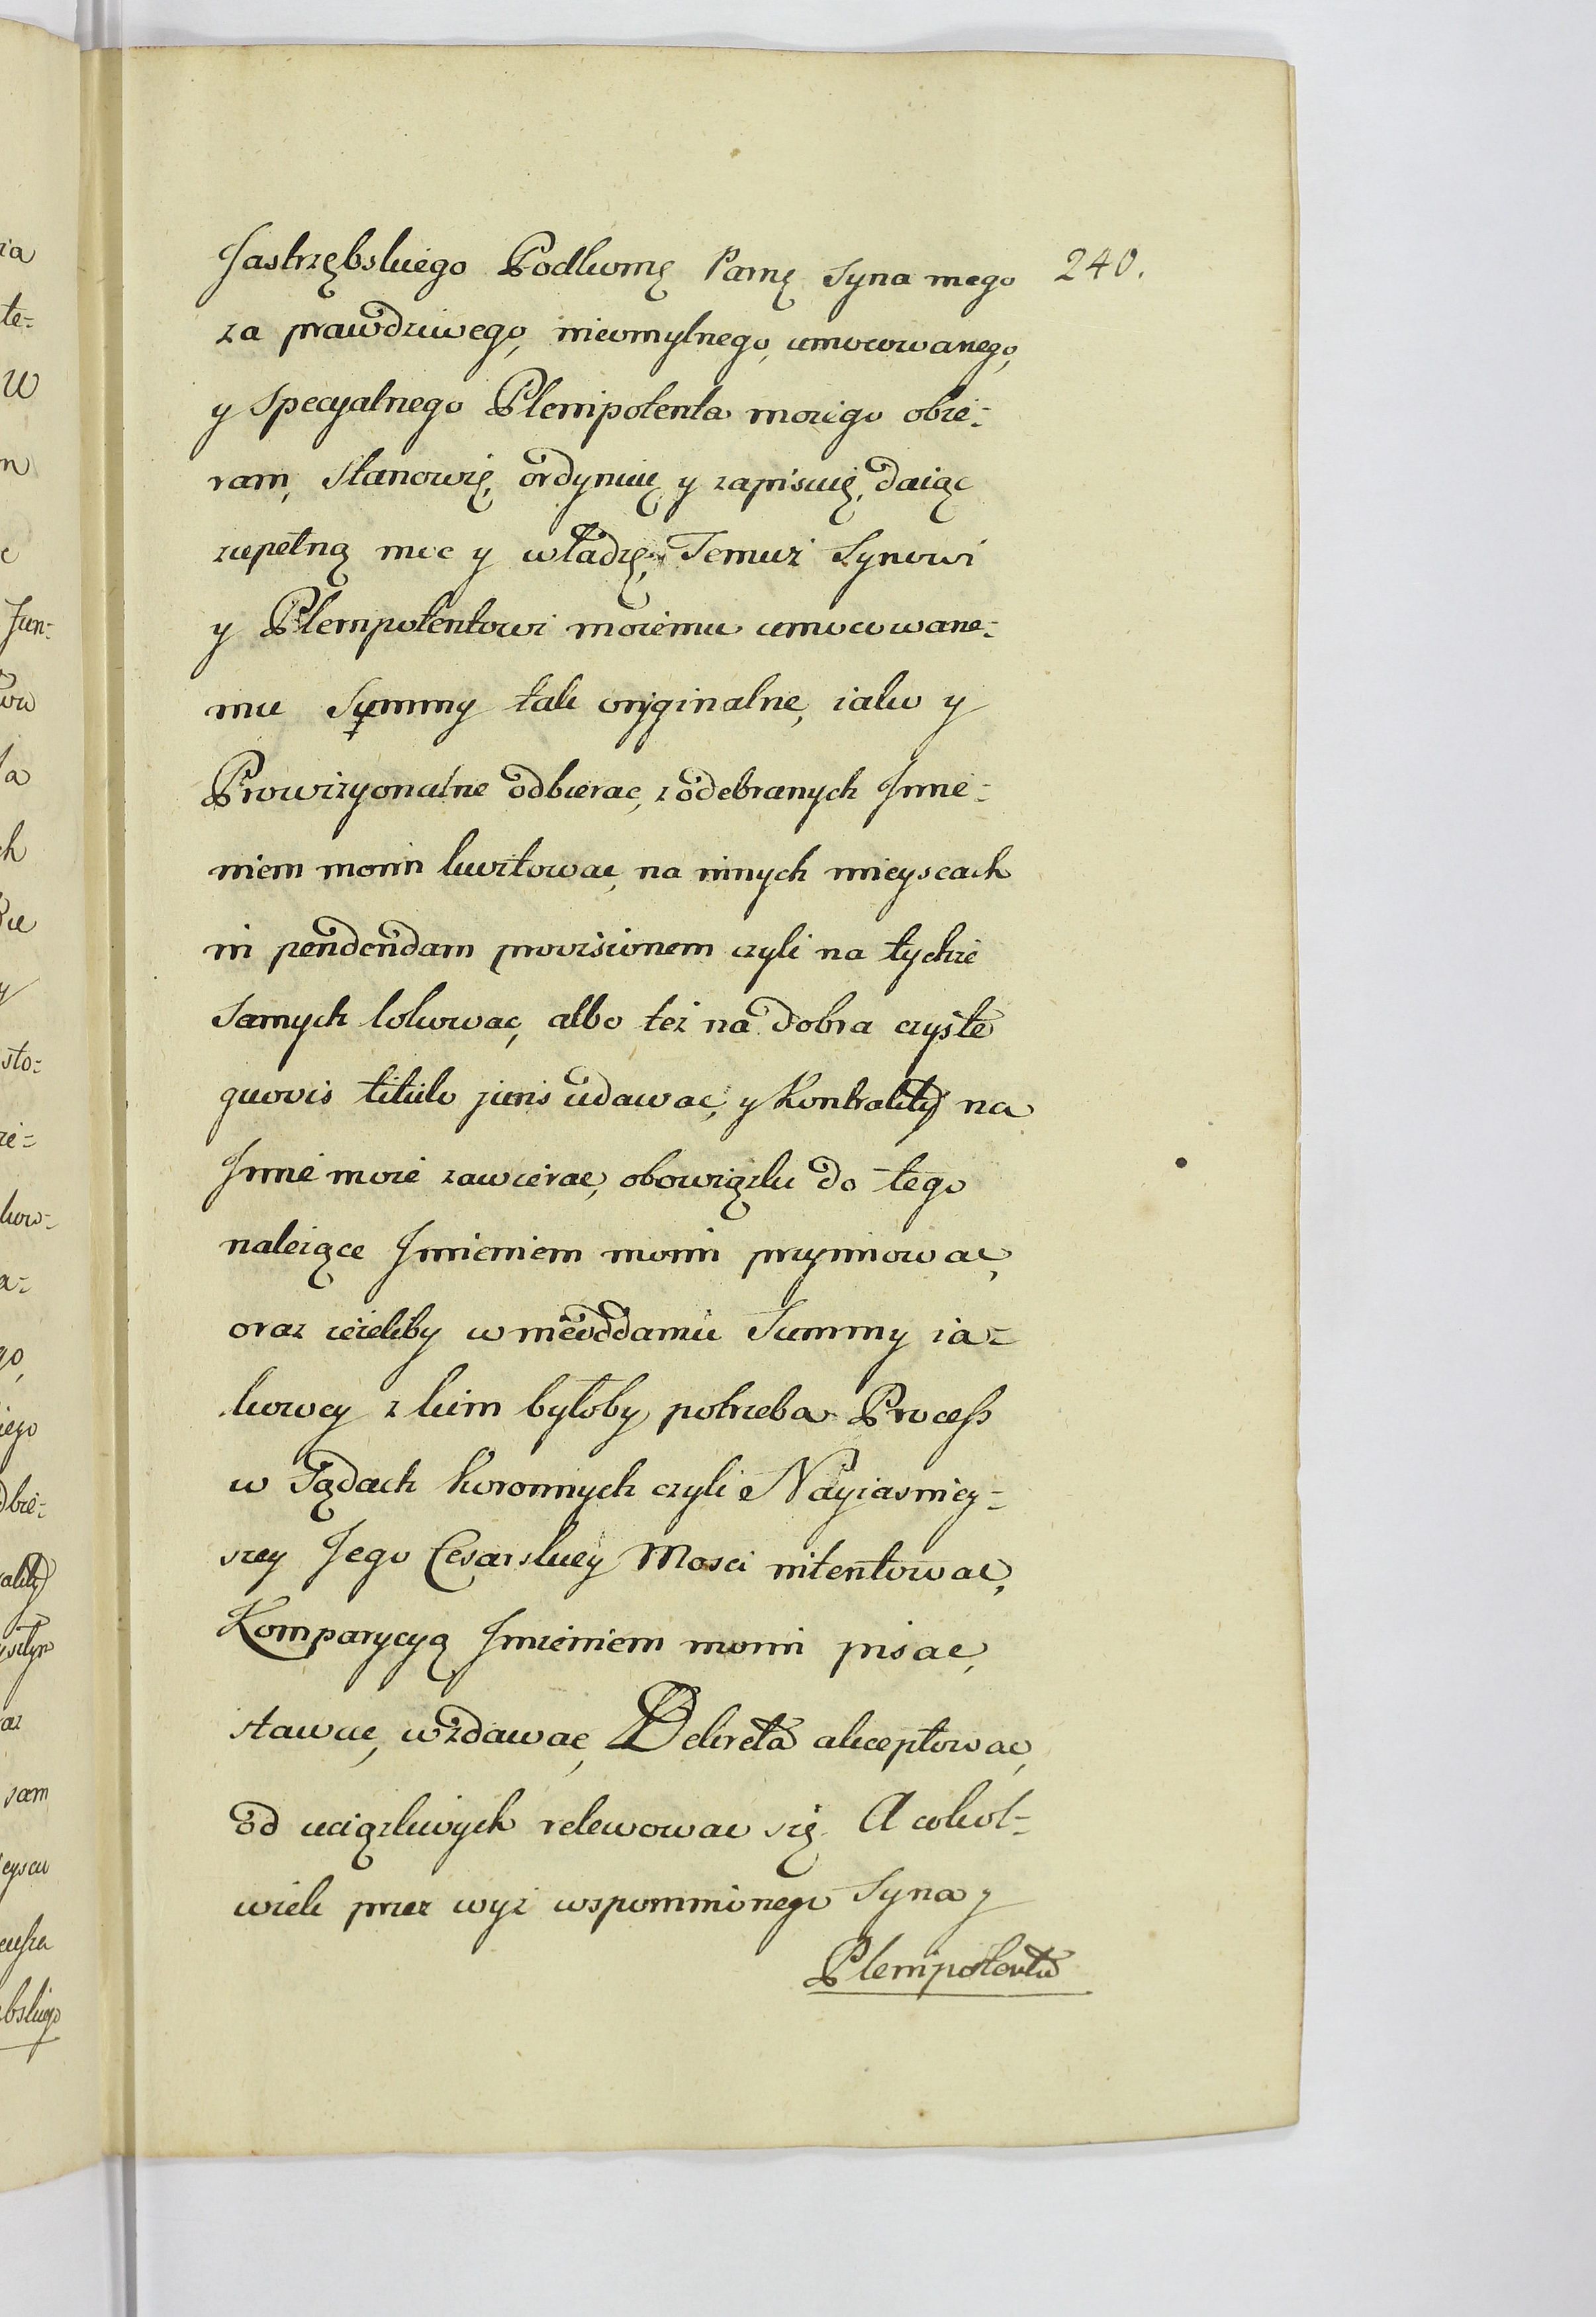 Jastrzębskiego Podkomę Parnę Syna mego 240.
za prawdziwego, nieomylnego, umocowanego,
y specyalnego Plenipotenta moiego obie-
ram, stanowię, ordynuię y zapisuię, daiąc
zupełną moc y władzę, Temuż Synowi
y Plenipotentowi moiemu umocowane-
mu Summy tak oryginalne, iako y
Prowizyonalne odbierac, z odebranych Imie-
niem moim kwitowac, na innych mieyscach
in pendendam provisionem czyli na tychże
samych lokowac, albo też na dobra czyste
quovis titulo juris udawac, y Kontrakty na
Imie moie zawierac, obowiązki do tego
należące Imieniem moim przyimowac,
oraz ieżeliby w nieoddaniu Summy ia-
kowey z kim byłoby potrzeba Process
w Sądach koronnych czyli Nayiasniey-
szey Jego Cesarskiey Mosci intentowac,
Komparycyą Imieniem moim pisac,
stawac, wzdawac, Dekreta akceptowac,
od uciązliwych relewowac się. A cokol-
wiek przez wyż wspomnionego Syna y
Plenipotenta
ia
te-
w
m
Jun-
la
ch
y
sto-
że-
kow-
a-
go,
iego
dbie-
akty
az
sam
eyscu
bskiego